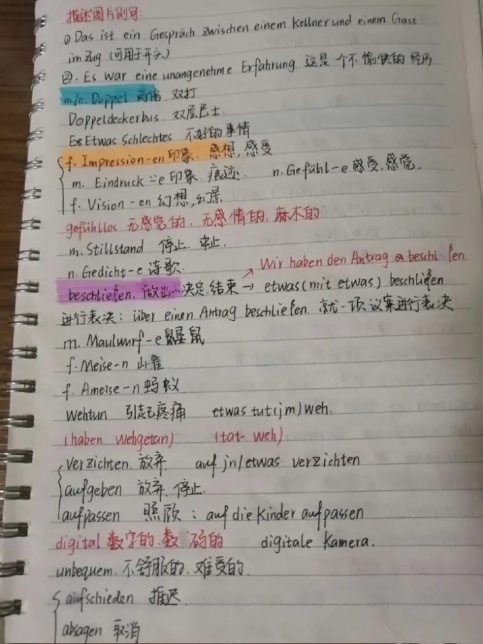 描述图片例句:
① Das ist ein Gespräch zwischen einem Kellner und einem Gast
im Zug (可用于开头)
②. Es war eine unangenehme Erfahrung. 这是个不愉快的经历
m/n. Doppel 双打
Doppeldeckerbus. 双层巴士
Etwas Schlechtes 不好的事情
f. Impression-en 印象. 感想, 感受
m. Eindruck -e 印象. 痕迹. n. Gefühl-e 感受. 感觉.
f. Vision-en 幻想, 幻景
gefühllos 无感觉的, 无感情的, 麻木的
m. Stillstand 停止.
n. Gedicht-e 诗歌
Wir haben den Antrag beschl ßen.
beschließen. 做出…决定. 结束 → etwas(mit etwas) beschließen
进行表决: über einen Antrag beschließen. 就一项议案进行表决
m. Maulwurf-e 鼹鼠
f. Meise-n 山雀
f. Ameise-n 蚂蚁
wehtun 引起疼痛 etwas tut(jm) weh.
(haben wehgetan) (tat weh)
verzichten. 放弃 auf jn/etwas verzichten
aufgeben 放弃. 停止.
aufpassen 照顾: auf die Kinder aufpassen
digital 数字的. 数码的 digitale Kamera.
unbequem. 不舒服的. 难受的.
aufschieden 推迟.
absagen 取消